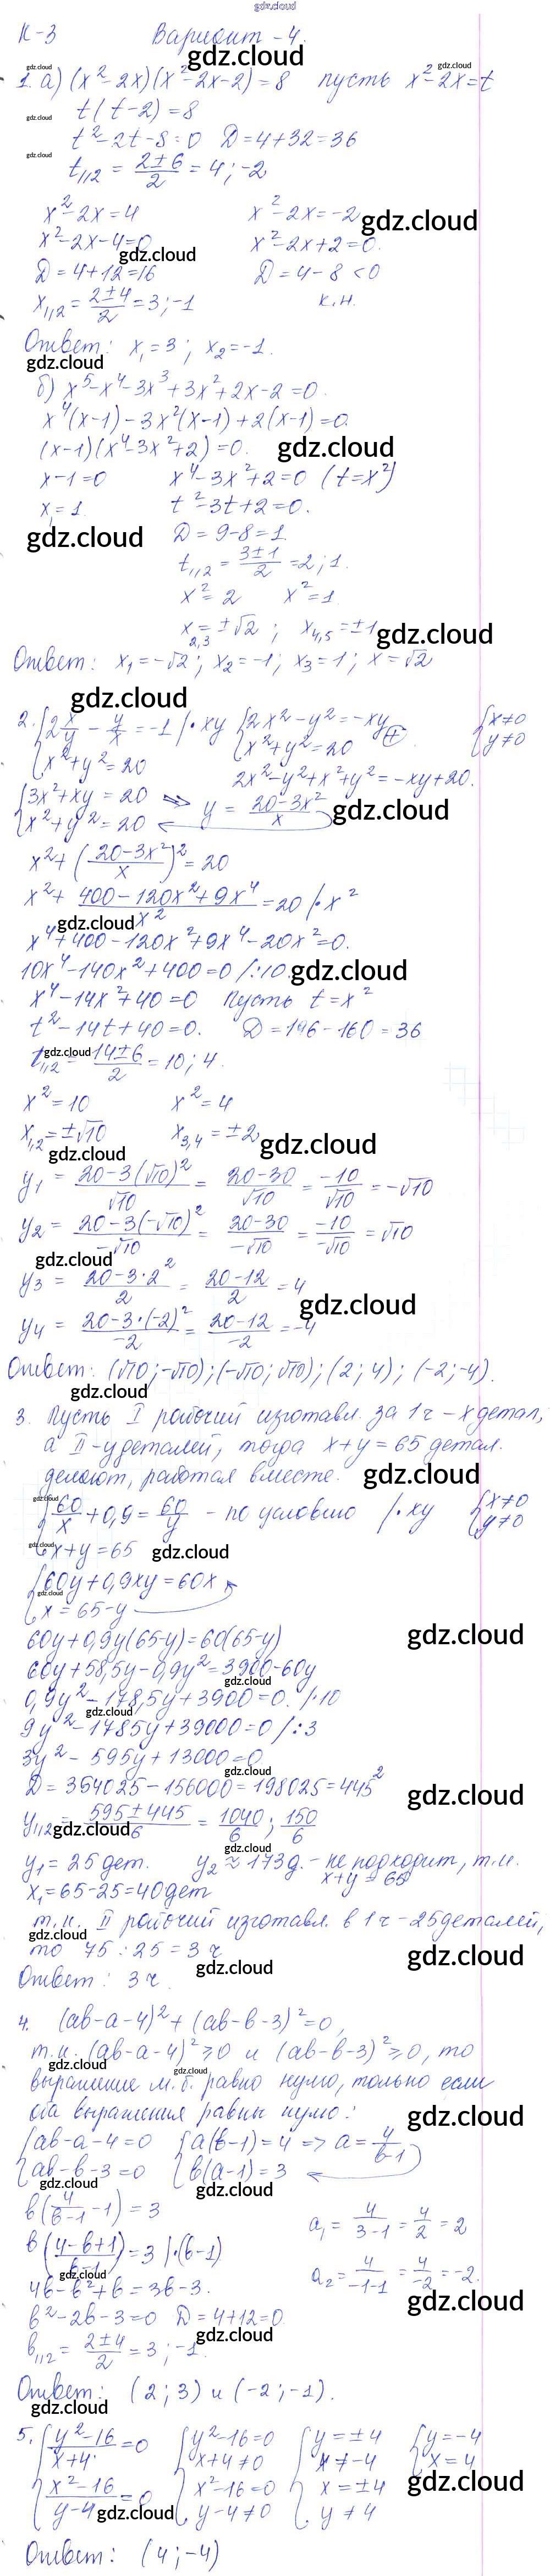 gdz.cloud
К-3 Вариант-4.
1. а) (x²-2x)(x²-2x-2)=8 пусть x²-2x=t
t(t-2)=8
t²-2t-8=0 D=4+32=36
t₁,₂ = (2±6)/2 = 4; -2
x²-2x=4 x²-2x=-2
x²-2x-4=0 x²-2x+2=0.
D=4+12=16 D=4-8<0
x₁,₂ = (2±4)/2 = 3; -1 к.н.
Ответ: x₁=3; x₂=-1.
б) x⁵-x⁴-3x³+3x²+2x-2=0.
x⁴(x-1)-3x²(x-1)+2(x-1)=0.
(x-1)(x⁴-3x²+2)=0.
x-1=0 x⁴-3x²+2=0 (t=x²)
x₁=1 t²-3t+2=0.
D=9-8=1.
t₁,₂ = (3±1)/2 = 2; 1.
x²=2 x²=1
x₂,₃=±√2; x₄,₅=±1
Ответ: x₁=-√2; x₂=-1; x₃=1; x=√2
2. {2x/y - y/x = -1 |·xy {2x²-y²=-xy (+) {x≠0
{x²+y²=20 {x²+y²=20 {y≠0
2x²-y²+x²+y²=-xy+20.
{3x²+xy=20 => y = (20-3x²)/x
{x²+y²=20
x²+((20-3x²)/x)²=20
x²+(400-120x²+9x⁴)/x²=20 |·x²
x⁴+400-120x²+9x⁴-20x²=0.
10x⁴-140x²+400=0 |:10
x⁴-14x²+40=0 Пусть t=x²
t²-14t+40=0. D=196-160=36
t₁,₂ = (14±6)/2 = 10; 4.
x²=10 x²=4
x₁,₂=±√10 x₃,₄=±2
y₁ = (20-3(√10)²)/√10 = (20-30)/√10 = -10/√10 = -√10
y₂ = (20-3(-√10)²)/-√10 = (20-30)/-√10 = -10/-√10 = √10
y₃ = (20-3·2²)/2 = (20-12)/2 = 4
y₄ = (20-3·(-2)²)/-2 = (20-12)/-2 = -4
Ответ: (√10; -√10); (-√10; √10); (2; 4); (-2; -4).
3. Пусть I рабочий изготавл. за 1ч - x детал,
а II - y деталей, тогда x+y=65 детал.
делают, работая вместе.
{60/x + 0,9 = 60/y - по условию |·xy {x≠0
{x+y=65 {y≠0
{60y+0,9xy=60x
{x=65-y
60y+0,9y(65-y)=60(65-y)
60y+58,5y-0,9y²=3900-60y
0,9y²-178,5y+3900=0. |·10
9y²-1785y+39000=0 |:3
3y²-595y+13000=0
D=354025-156000=198025=445²
y₁,₂ = (595±445)/6 = 1040/6; 150/6
y₁=25 дет. y₂≈173 д. - не подходит, т.к.
x₁=65-25=40 дет x+y=65
т.к. II рабочий изготавл. в 1ч - 25 деталей,
то 75:25=3 ч
Ответ: 3 ч.
4. (ab-a-4)²+(ab-b-3)²=0,
т.к. (ab-a-4)²≥0 и (ab-b-3)²≥0, то
выражение м.б. равно нулю, только если
оба выражения равны нулю:
{ab-a-4=0 {a(b-1)=4 => a=4/(b-1)
{ab-b-3=0 {b(a-1)=3
b(4/(b-1) -1)=3
b((4-b+1)/(b-1))=3 |·(b-1) a₁ = 4/(3-1) = 4/2 = 2
4b-b²+b=3b-3. a₂ = 4/(-1-1) = 4/-2 = -2.
b²-2b-3=0 D=4+12=0
b₁,₂ = (2±4)/2 = 3; -1.
Ответ: (2; 3) и (-2; -1).
5. {(y²-16)/(x+4)=0 {y²-16=0 {y=±4 {y=-4
{(x²-16)/(y-4)=0 {x+4≠0 {x≠-4 {x=4
{x²-16=0 {x=±4
{y-4≠0 {y≠4
Ответ: (4; -4)